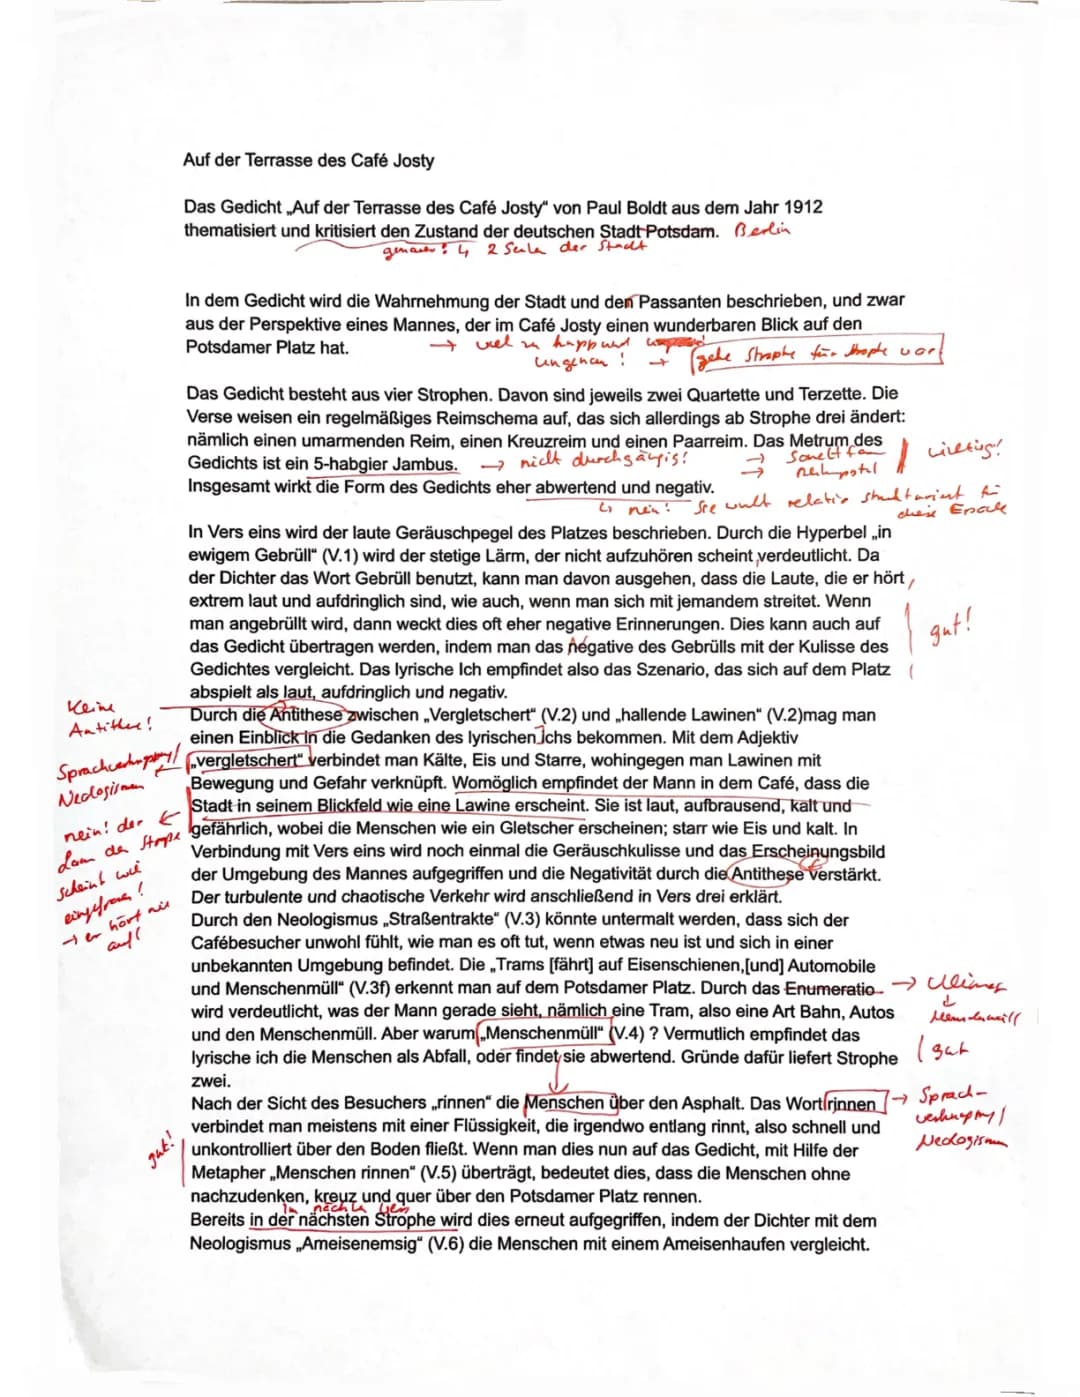 Auf der Terrasse des Café Josty
Das Gedicht „Auf der Terrasse des Café Josty“ von Paul Boldt aus dem Jahr 1912
thematisiert und kritisiert den Zustand der deutschen Stadt Potsdam. Berlin
genauer! 2 Seiten der Stadt
In dem Gedicht wird die Wahrnehmung der Stadt und den Passanten beschrieben, und zwar
aus der Perspektive eines Mannes, der im Café Josty einen wunderbaren Blick auf den
Potsdamer Platz hat. → viel zu knapp und
ungenau! → gehe Strophe für Strophe vor!
Das Gedicht besteht aus vier Strophen. Davon sind jeweils zwei Quartette und Terzette. Die
Verse weisen ein regelmäßiges Reimschema auf, das sich allerdings ab Strophe drei ändert:
nämlich einen umarmenden Reim, einen Kreuzreim und einen Paarreim. Das Metrum des
Gedichts ist ein 5-habgier Jambus. → nicht durchgängig! → Sonettform → wichtig!
Insgesamt wirkt die Form des Gedichts eher abwertend und negativ.
↳ nein! Sie wirkt relativ strukturiert für
diese Epoche
In Vers eins wird der laute Geräuschpegel des Platzes beschrieben. Durch die Hyperbel „in
ewigem Gebrüll“ (V.1) wird der stetige Lärm, der nicht aufzuhören scheint verdeutlicht. Da
der Dichter das Wort Gebrüll benutzt, kann man davon ausgehen, dass die Laute, die er hört,
extrem laut und aufdringlich sind, wie auch, wenn man sich mit jemandem streitet. Wenn
man angebrüllt wird, dann weckt dies oft eher negative Erinnerungen. Dies kann auch auf
gut!
das Gedicht übertragen werden, indem man das Negative des Gebrülls mit der Kulisse des
Gedichtes vergleicht. Das lyrische Ich empfindet also das Szenario, das sich auf dem Platz
abspielt als laut, aufdringlich und negativ.
Keine
Antithese!
Durch die Antithese zwischen „Vergletschert“ (V.2) und „hallende Lawinen“ (V.2)mag man
einen Einblick in die Gedanken des lyrischen Ichs bekommen. Mit dem Adjektiv
Sprachverknappung/
Neologismus
„vergletschert“ verbindet man Kälte, Eis und Starre, wohingegen man Lawinen mit
Bewegung und Gefahr verknüpft. Womöglich empfindet der Mann in dem Café, dass die
Stadt in seinem Blickfeld wie eine Lawine erscheint. Sie ist laut, aufbrausend, kalt und
nein! der
Lärm der Straße
scheint wie
eingefroren!
→ er hört nie
auf!
gefährlich, wobei die Menschen wie ein Gletscher erscheinen; starr wie Eis und kalt. In
Verbindung mit Vers eins wird noch einmal die Geräuschkulisse und das Erscheinungsbild
der Umgebung des Mannes aufgegriffen und die Negativität durch die Antithese verstärkt.
Der turbulente und chaotische Verkehr wird anschließend in Vers drei erklärt.
Durch den Neologismus „Straßentrakte“ (V.3) könnte untermalt werden, dass sich der
Cafébesucher unwohl fühlt, wie man es oft tut, wenn etwas neu ist und sich in einer
unbekannten Umgebung befindet. Die „Trams [fährt] auf Eisenschienen,[und] Automobile
und Menschenmüll“ (V.3f) erkennt man auf dem Potsdamer Platz. Durch das Enumeratio → Klimax
↓
Menschenmüll
wird verdeutlicht, was der Mann gerade sieht, nämlich eine Tram, also eine Art Bahn, Autos
und den Menschenmüll. Aber warum „Menschenmüll“ (V.4) ? Vermutlich empfindet das
lyrische ich die Menschen als Abfall, oder findet sie abwertend. Gründe dafür liefert Strophe gut
zwei.
Nach der Sicht des Besuchers „rinnen“ die Menschen über den Asphalt. Das Wort rinnen → Sprach-
verknappung/
Neologismus
verbindet man meistens mit einer Flüssigkeit, die irgendwo entlang rinnt, also schnell und
gut!
unkontrolliert über den Boden fließt. Wenn man dies nun auf das Gedicht, mit Hilfe der
Metapher „Menschen rinnen“ (V.5) überträgt, bedeutet dies, dass die Menschen ohne
nachzudenken, kreuz und quer über den Potsdamer Platz rennen.
Im nächsten Vers
Bereits in der nächsten Strophe wird dies erneut aufgegriffen, indem der Dichter mit dem
Neologismus „Ameisenemsig“ (V.6) die Menschen mit einem Ameisenhaufen vergleicht.